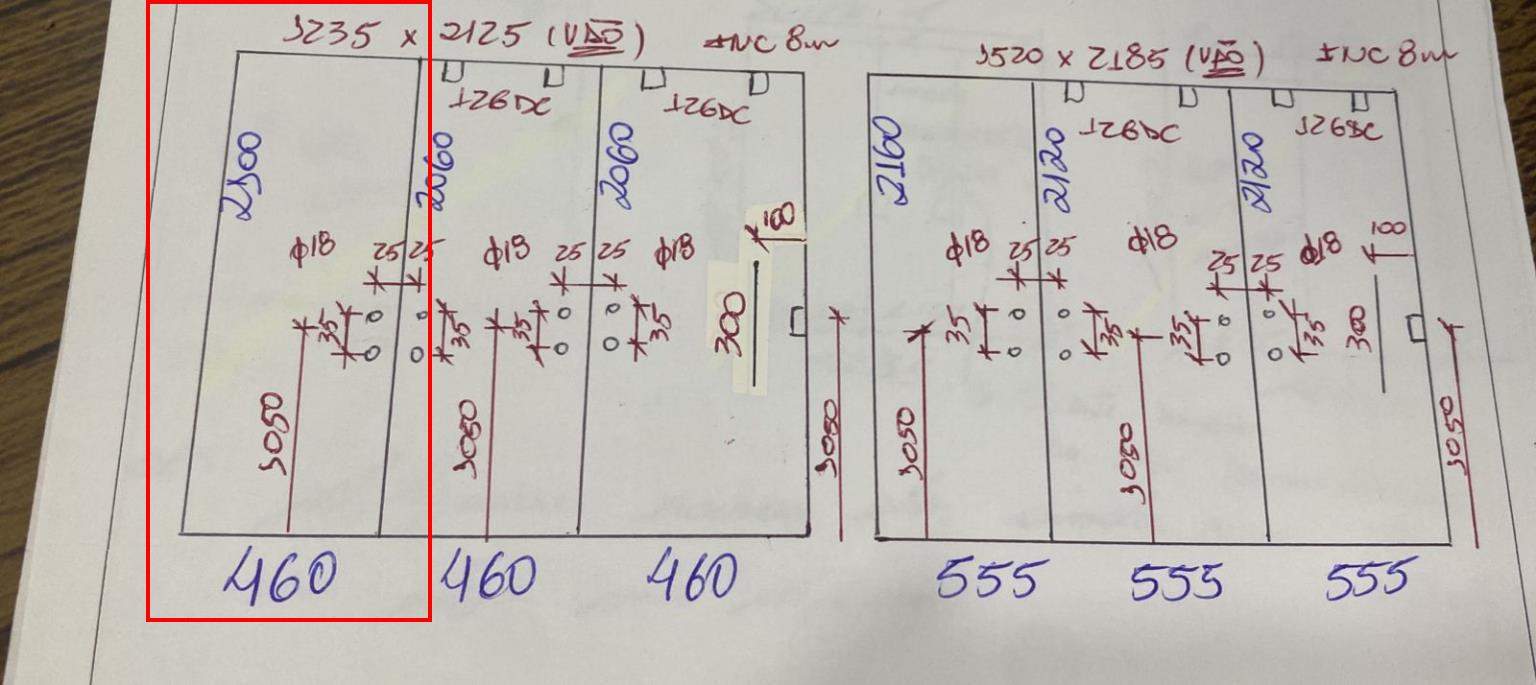 1235 x 2125 (VÃO) INC 8m
1520 x 2185 (VÃO) INC 8m
2100
2060
2060
2160
2120
2120
100
100
Φ18
25 25
Φ18
25 25
Φ18
Φ18
25 25
Φ18
25 25
Φ18
35
35
35
35
300
35
35
35
35
300
1050
1050
1050
1050
1050
1050
460
460
460
555
555
555